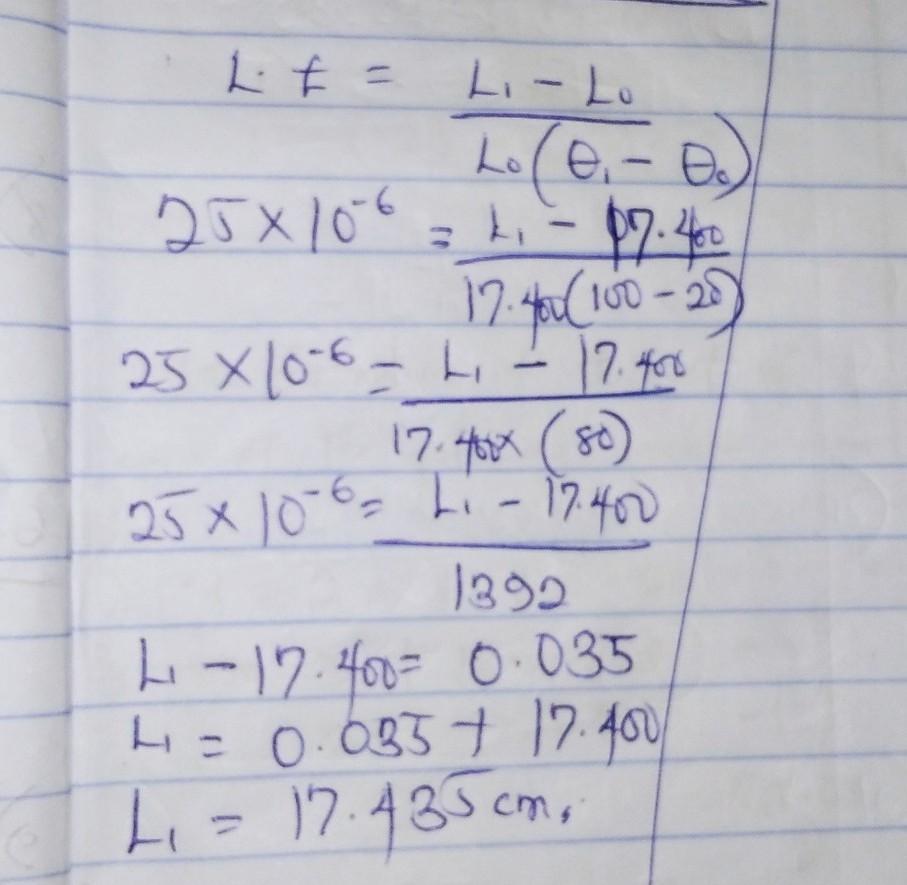 L. E = L₁ - L₀
L₀(θ₁ - θ₀)
25 × 10⁻⁶ = L₁ - 17.400
17.400(100 - 20)
25 × 10⁻⁶ = L₁ - 17.400
17.400× (80)
25 × 10⁻⁶ = L₁ - 17.400
1392
L₁ - 17.400 = 0.035
L₁ = 0.035 + 17.400
L₁ = 17.435 cm.